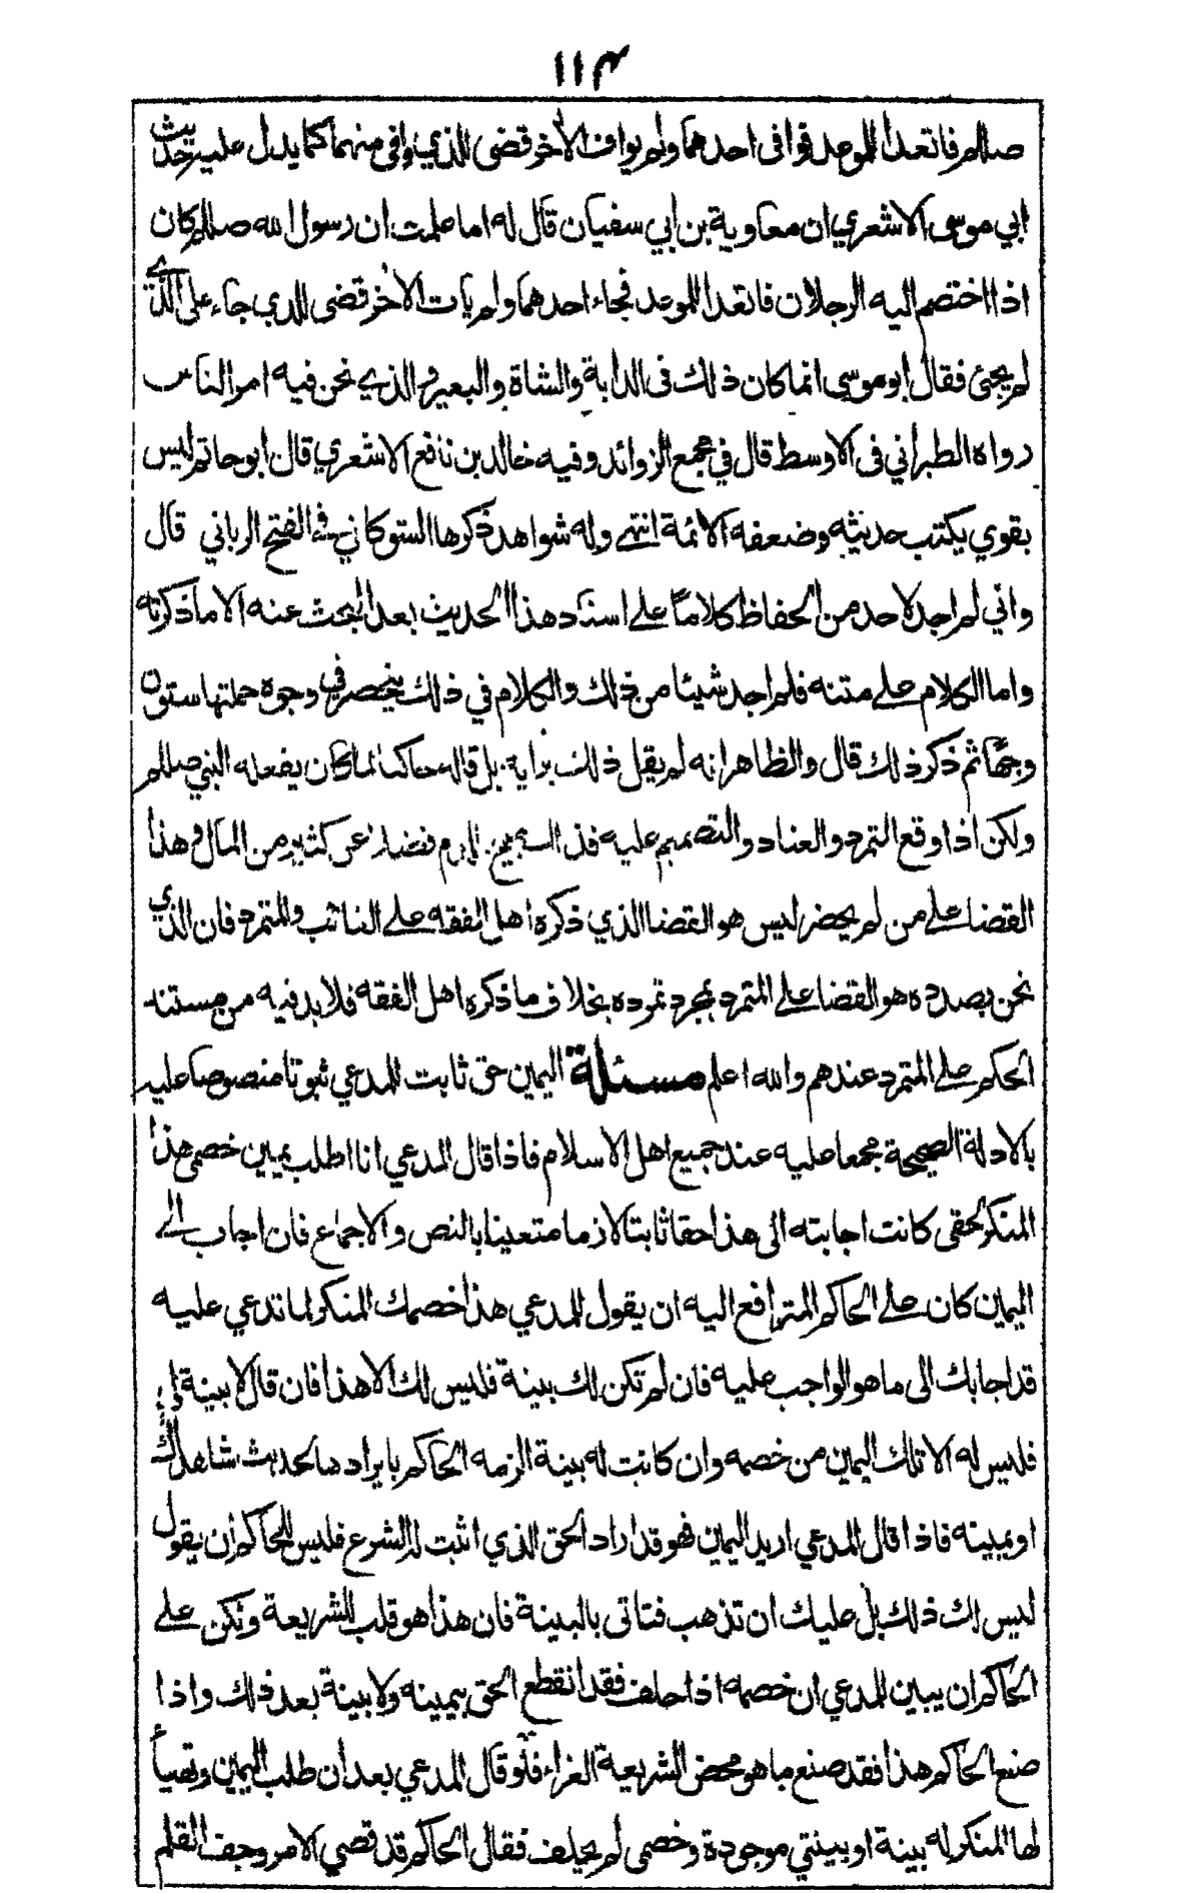 ١١٣
صللم فاتعدا الموعد فوافى احدهما ولم يواف الآخر قضى للذي وافى منهما كما يدل عليه حديث
ابي موسى الاشعري ان معاوية بن ابي سفيان قال له اما علمت ان رسول الله صللم كان
اذا اختصم اليه الرجلان فاتعدا الموعد فجاء احدهما ولم يات الآخر قضى للذي جاء على الذي
لم يجئ فقال ابو موسى انما كان ذلك فى الدابة والشاة والبعير والذي نحن فيه امر الناس
رواه الطبراني فى الاوسط قال في مجمع الزوائد وفيه خالد بن نافع الاشعري قال ابو حاتم ليس
بقوي يكتب حديثه وضعفه الائمة انتهى وله شواهد ذكرها الشوكاني في الفتح الرباني قال
واني لم اجد لاحد من الحفاظ كلاما على اسناد هذا الحديث بعد البحث عنه الا ما ذكرته
واما الكلام على متنه فلم اجد شيئا من ذلك والكلام في ذلك ينحصر في وجوه جملتها ستون
وجها ثم ذكر ذلك قال والظاهر انه لم يقل ذلك براية بل قاله حاكيا لما كان يفعله النبي صللم
ولكن اذا وقع التمرد والعناد والتصميم عليه فذلك يبيح الدم فضلا عن كثير من المال وهذا
القضا على من لم يحضر ليس هو القضا الذي ذكره اهل الفقه على الغائب والمتمرد فان الذي
نحن بصدده هو القضا على المتمرد بمجرد تمرده بخلاف ما ذكره اهل الفقه فلا بد فيه من مستند
الحكم على المتمرد عندهم والله اعلم مسئلة اليمين حق ثابت للمدعي ثبوتا منصوصا عليه
بالادلة الصحيحة مجمعا عليه عند جميع اهل الاسلام فاذا قال المدعي انا اطلب يمين خصمى هذا
المنكر لحقى كانت اجابته الى هذا حقا ثابتا لازما متعينا بالنص والاجماع فان اجاب الى
اليمين كان على الحاكم المترافع اليه ان يقول للمدعي هذا خصمك المنكر لما تدعي عليه
قد اجابك الى ما هو الواجب عليه فان لم تكن لك بينة فليس لك الا هذا فان قال لا بينة لي
فليس له الا تلك اليمين من خصمه وان كانت له بينة الزمه الحاكم بايرادها لحديث شاهداك
او يمينه فاذا قال المدعي اريد اليمين فهو قد اراد الحق الذي اثبت له الشرع فليس للحاكم ان يقول
ليس لك ذلك بل عليك ان تذهب فتاتى بالبينة فان هذا هو قلب للشريعة ولكن على
الحاكم ان يبين للمدعي ان خصمه اذا حلف فقد انقطع الحق بيمينه ولا بينة بعد ذلك واذا
صنع الحاكم هذا فقد صنع ما هو محض الشريعة الغراء فلو قال المدعي بعد ان طلب اليمين وتهيأ
لها المنكر له بينة او بينتي موجودة وخصمى لم يحلف فقال الحاكم قد قضي الامر وجف القلم